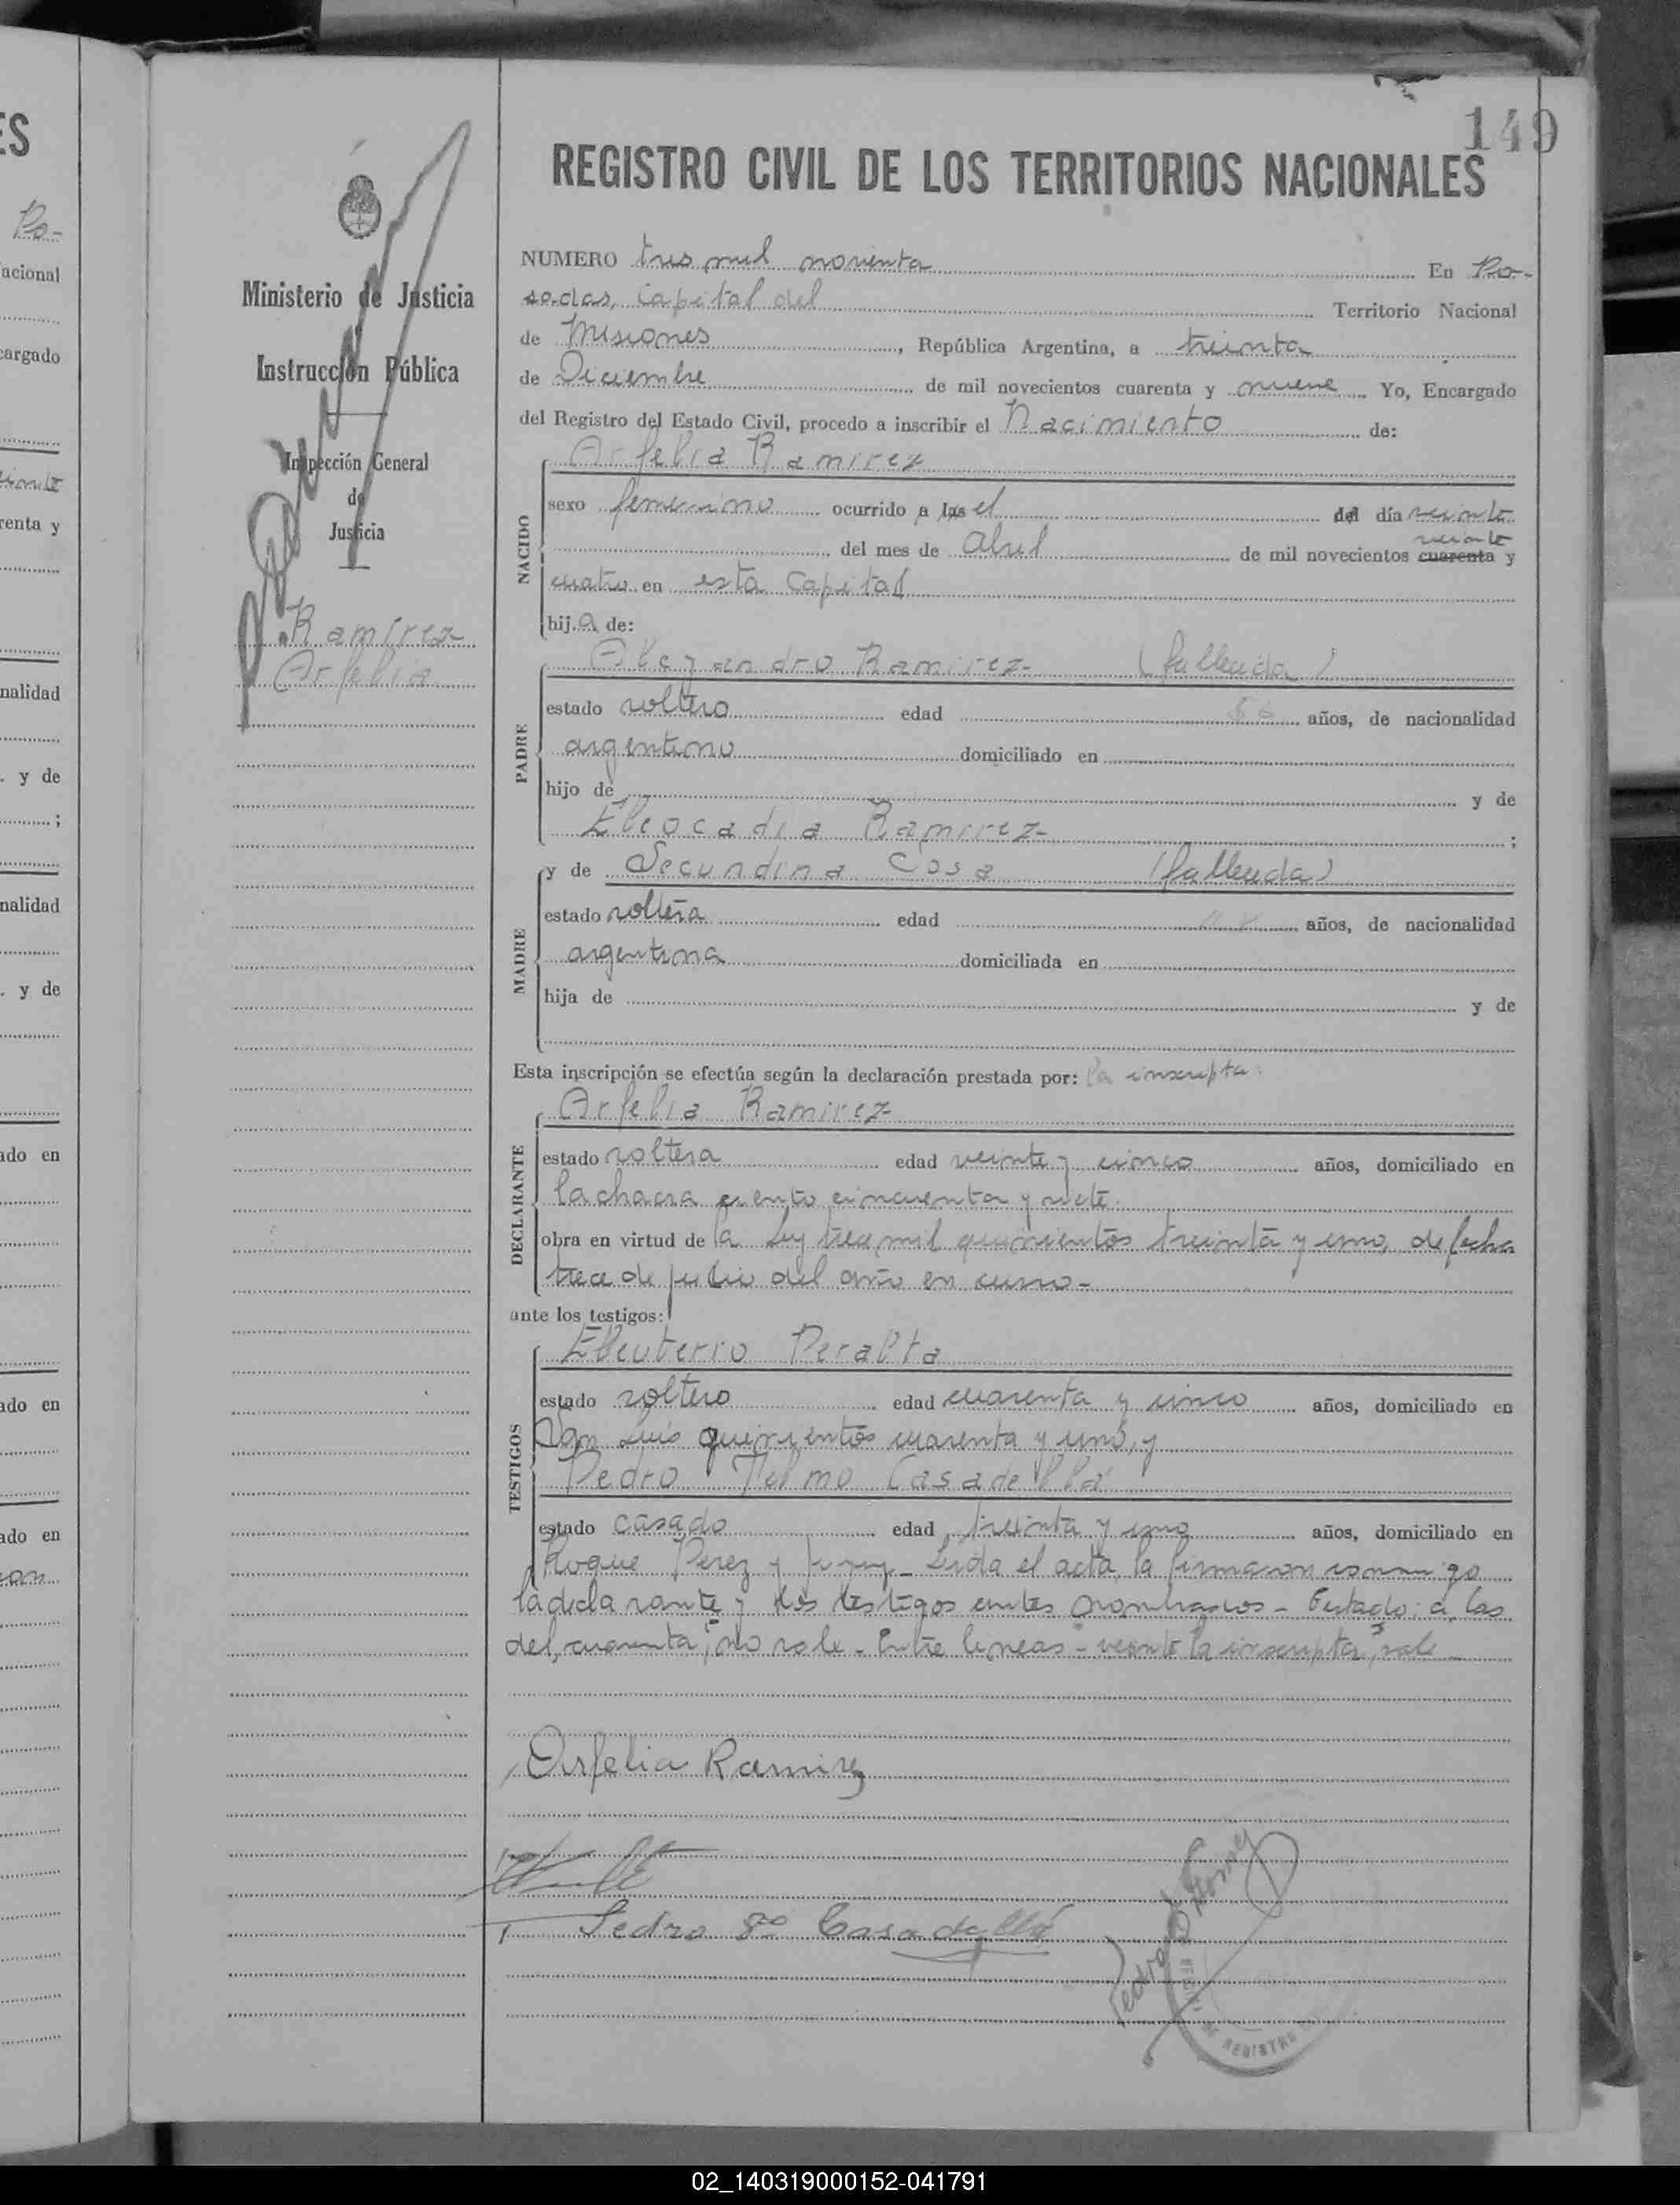 149
REGISTRO CIVIL DE LOS TERRITORIOS NACIONALES
NUMERO tres mil noventa En Po-
sadas, Capital del Territorio Nacional
de Misiones, República Argentina, a treinta
de Diciembre de mil novecientos cuarenta y nueve Yo, Encargado
del Registro del Estado Civil, procedo a inscribir el Nacimiento de:
NACIDO
Orfelia Ramirez
sexo femenino ocurrido a las el del día veinte
veinte
del mes de Abril de mil novecientos cuarenta y
cuatro en esta Capital
hija de:
PADRE
Alejandro Ramirez- (fallecido)
estado soltero edad años, de nacionalidad
argentino domiciliado en
hijo de y de
Eleocadia Ramirez- ;
MADRE
y de Secundina Sosa (fallecida)
estado soltera edad años, de nacionalidad
argentina domiciliada en
hija de y de
Esta inscripción se efectúa según la declaración prestada por: la inscripta
DECLARANTE
Orfelia Ramirez-
estado soltera edad veinte y cinco años, domiciliado en
la chacra ciento cincuenta y siete.
obra en virtud de la Ley trece mil quinientos treinta y uno, de fecha
trece de julio del año en curso-
ante los testigos:
TESTIGOS
Eleuterio Peralta
estado soltero edad cuarenta y cinco años, domiciliado en
San Luis quinientos cuarenta y uno, y
Pedro Telmo Casadellá
estado casado edad treinta y uno años, domiciliado en
Roque Perez y Jujuy- Leida el acta, la firmaron conmigo
la declarante y los testigos antes nombrados - Testado: a las
del, cuarenta, no vale - Entre lineas - veinte la inscripta, vale
Orfelia Ramirez
Pedro Tº Casadellá
Ministerio de Justicia
Instrucción Pública
Inspección General
de
Justicia
Ramirez-
Orfelia
ES
Po-
acional
cargado
renta y
nalidad
. y de
;
nalidad
. y de
ado en
ado en
ado en
REGISTRO
02_140319000152-041791